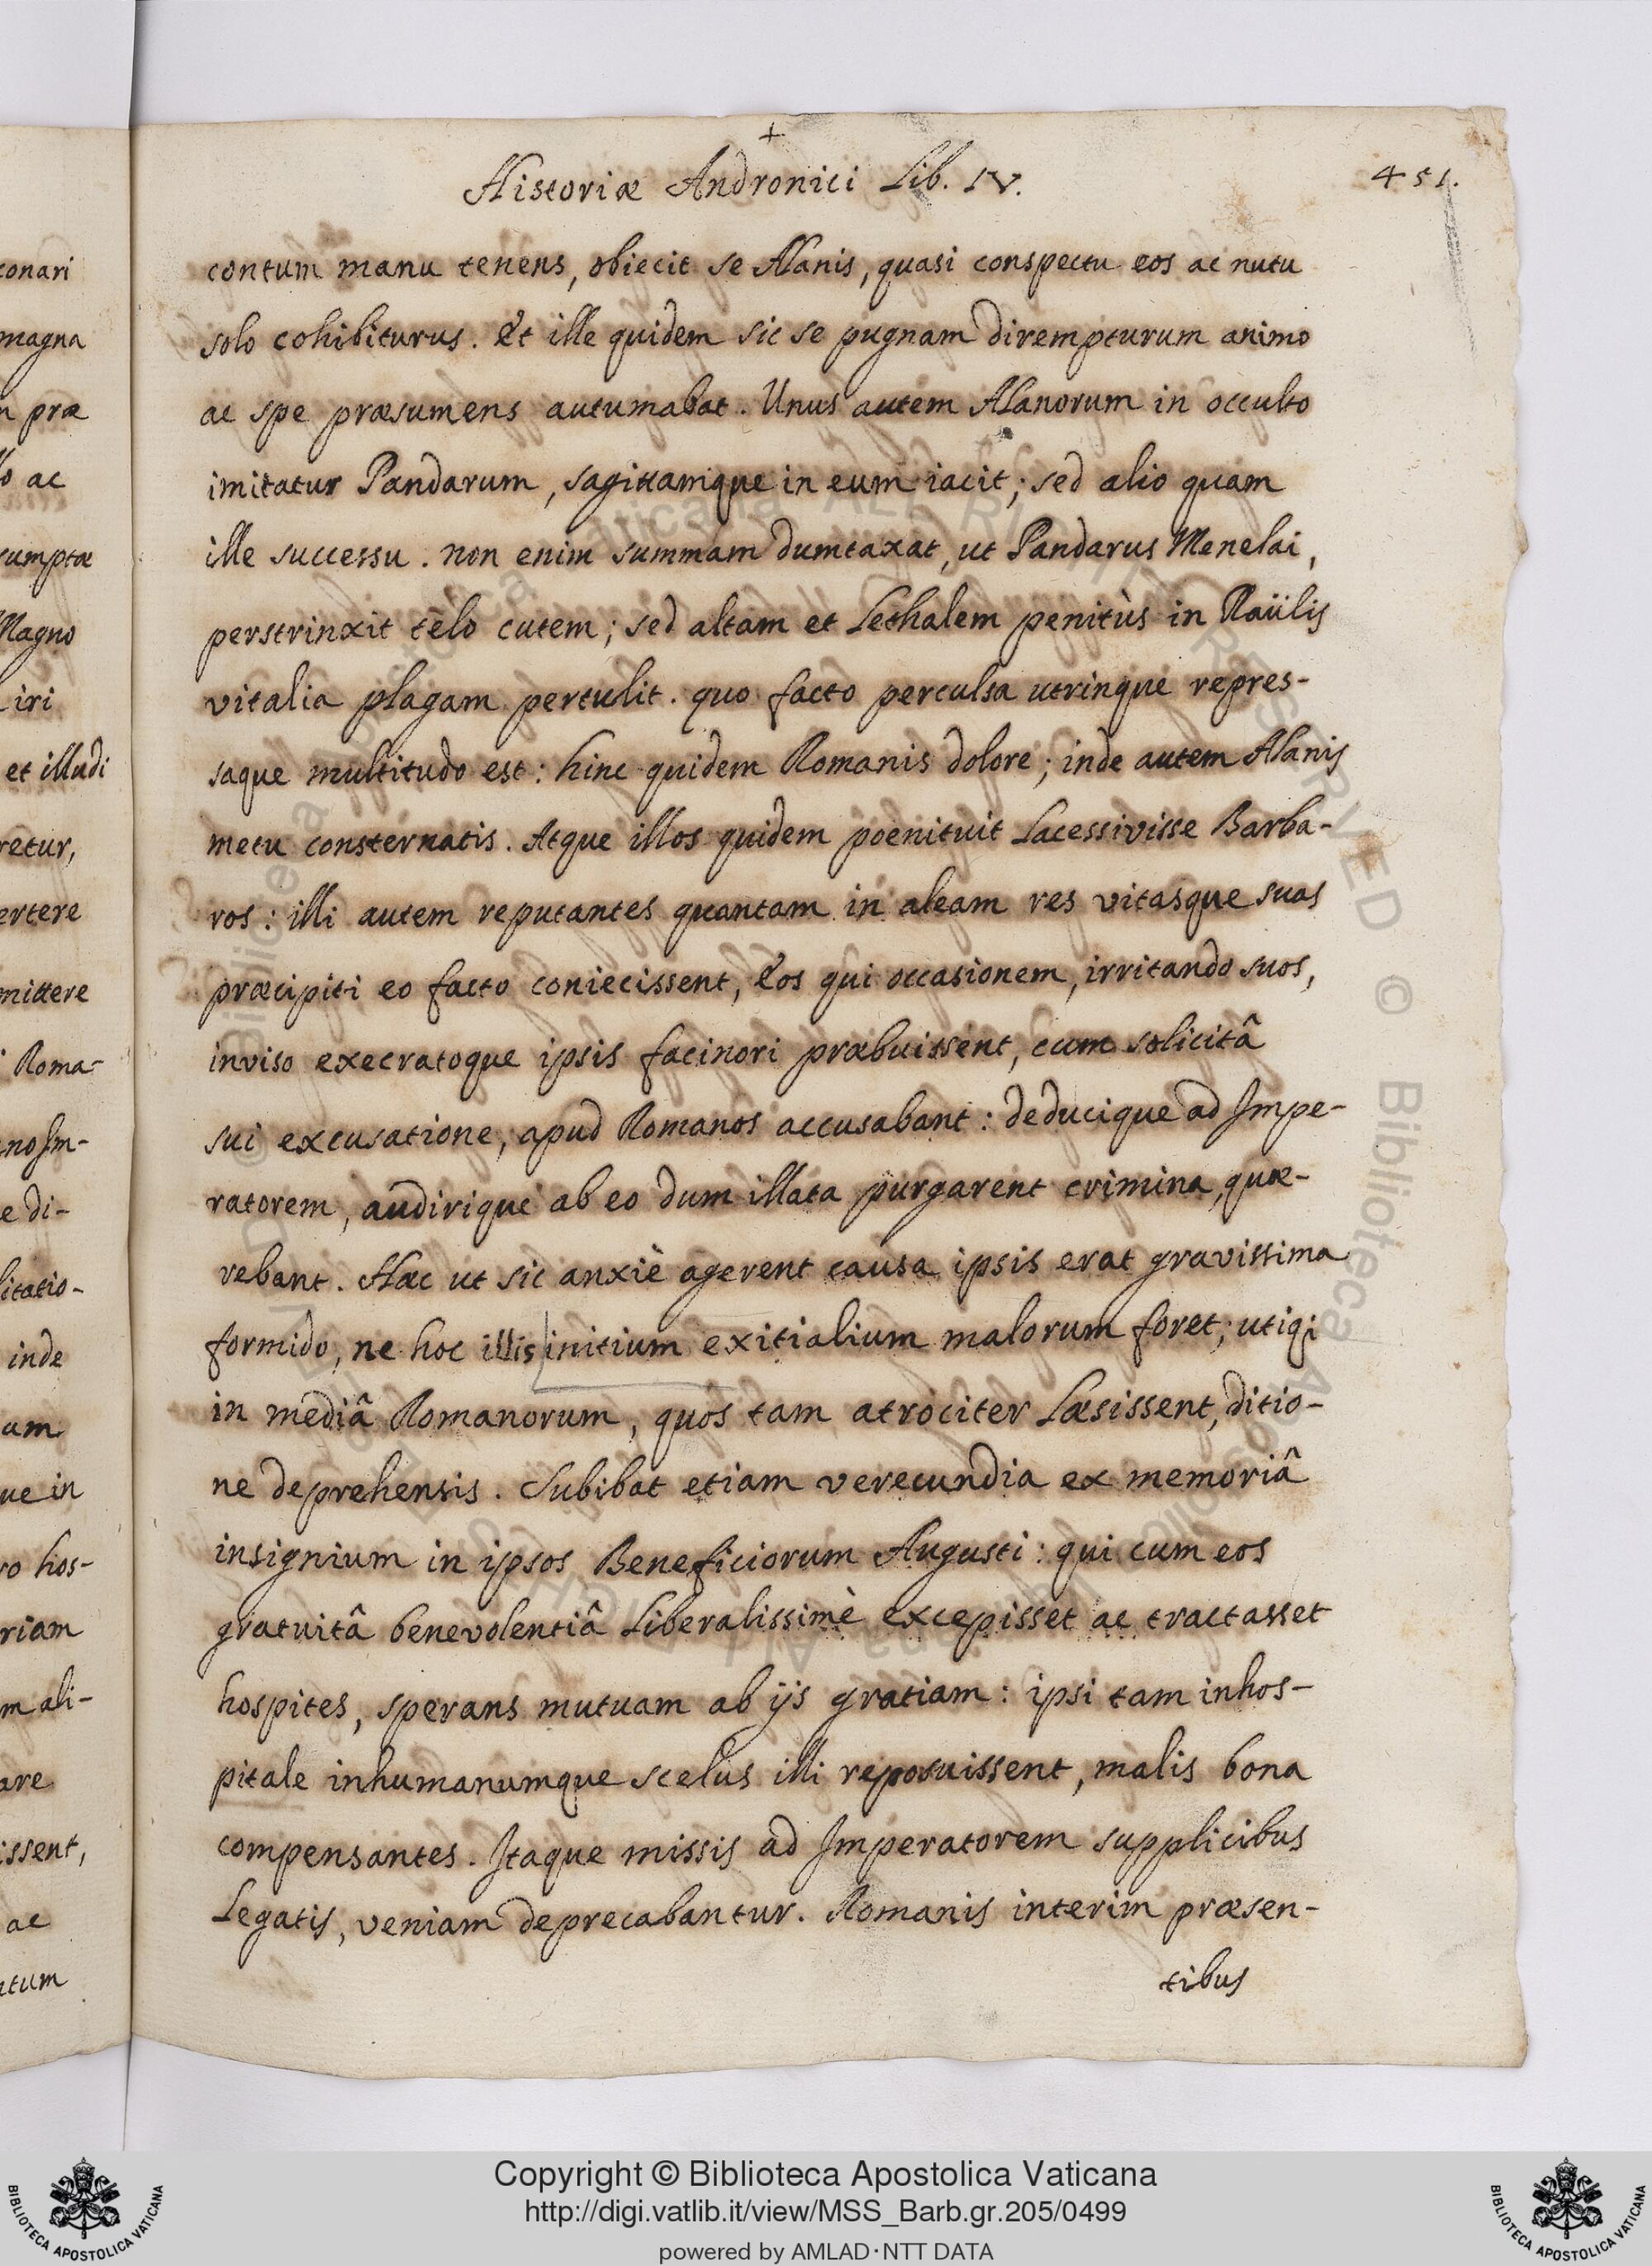 +
Historiæ Andronici Lib. IV.
451.
contum manu tenens, obiecit se Alanis, quasi conspectu eos ac nutu
solo cohibiturus. Et ille quidem sic se pugnam direмpturum animo
ac spe præsumens autumabat. Unus autem Alanorum in occulto
imitatur Pandarum, sagittamque in eum iacit; sed alio quam
ille successu. non enim summam dumtaxat, ut Pandarus Menelai,
perstrinxit telo cutem; sed altam et Lethalem penitùs in Raülis
vitalia plagam pertulit. quo facto perculsa utrinque repres-
saque multitudo est: hinc quidem Romanis dolore; inde autem Alanis
metu consternatis. Atque illos quidem poenituit Lacessivisse Barba-
ros: illi autem reputantes quantam in aleam res vitasque suas
præcipiti eo facto coniecissent, Eos qui occasionem, irritando suos,
inviso execratoque ipsis facinori præbuissent, cum solicitâ
sui excusatione, apud Romanos accusabant: deducique ad Impe-
ratorem, audirique ab eo dum illata purgarent crimina, quæ-
rebant. Hæc ut sic anxiè agerent causa ipsis erat gravissima
formido, ne hoc illis initium exitialium malorum foret; utiqi
in mediâ Romanorum, quos tam atrociter Læsissent, ditio-
ne deprehensis. Subibat etiam verecundia ex memoriâ
insignium in ipsos Beneficiorum Augusti: qui cum eos
gratuitâ benevolentiâ Liberalissimè excepisset ac tractasset
hospites, sperans mutuam ab ijs gratiam: ipsi tam inhos-
pitale inhumanumque scelus illi reposuissent, malis bona
compensantes. Itaque missis ad Imperatorem supplicibus
Legatis, veniam deprecabantur. Romanis interim præsen-
tibus
conari
magna
præ
ac
sumptæ
Magno
iri
et illudi
retur,
ertere
mittere
Roma-
no Im-
e di-
litatio-
inde
um
ue in
ro hos-
riam
m ali-
are
issent,
ac
ntum
© Biblioteca Apostolica Vaticana ALL RIGHTS RESERVED
Copyright © Biblioteca Apostolica Vaticana
http://digi.vatlib.it/view/MSS_Barb.gr.205/0499
powered by AMLAD·NTT DATA
BIBLIOTECA APOSTOLICA VATICANA
BIBLIOTECA APOSTOLICA VATICANA